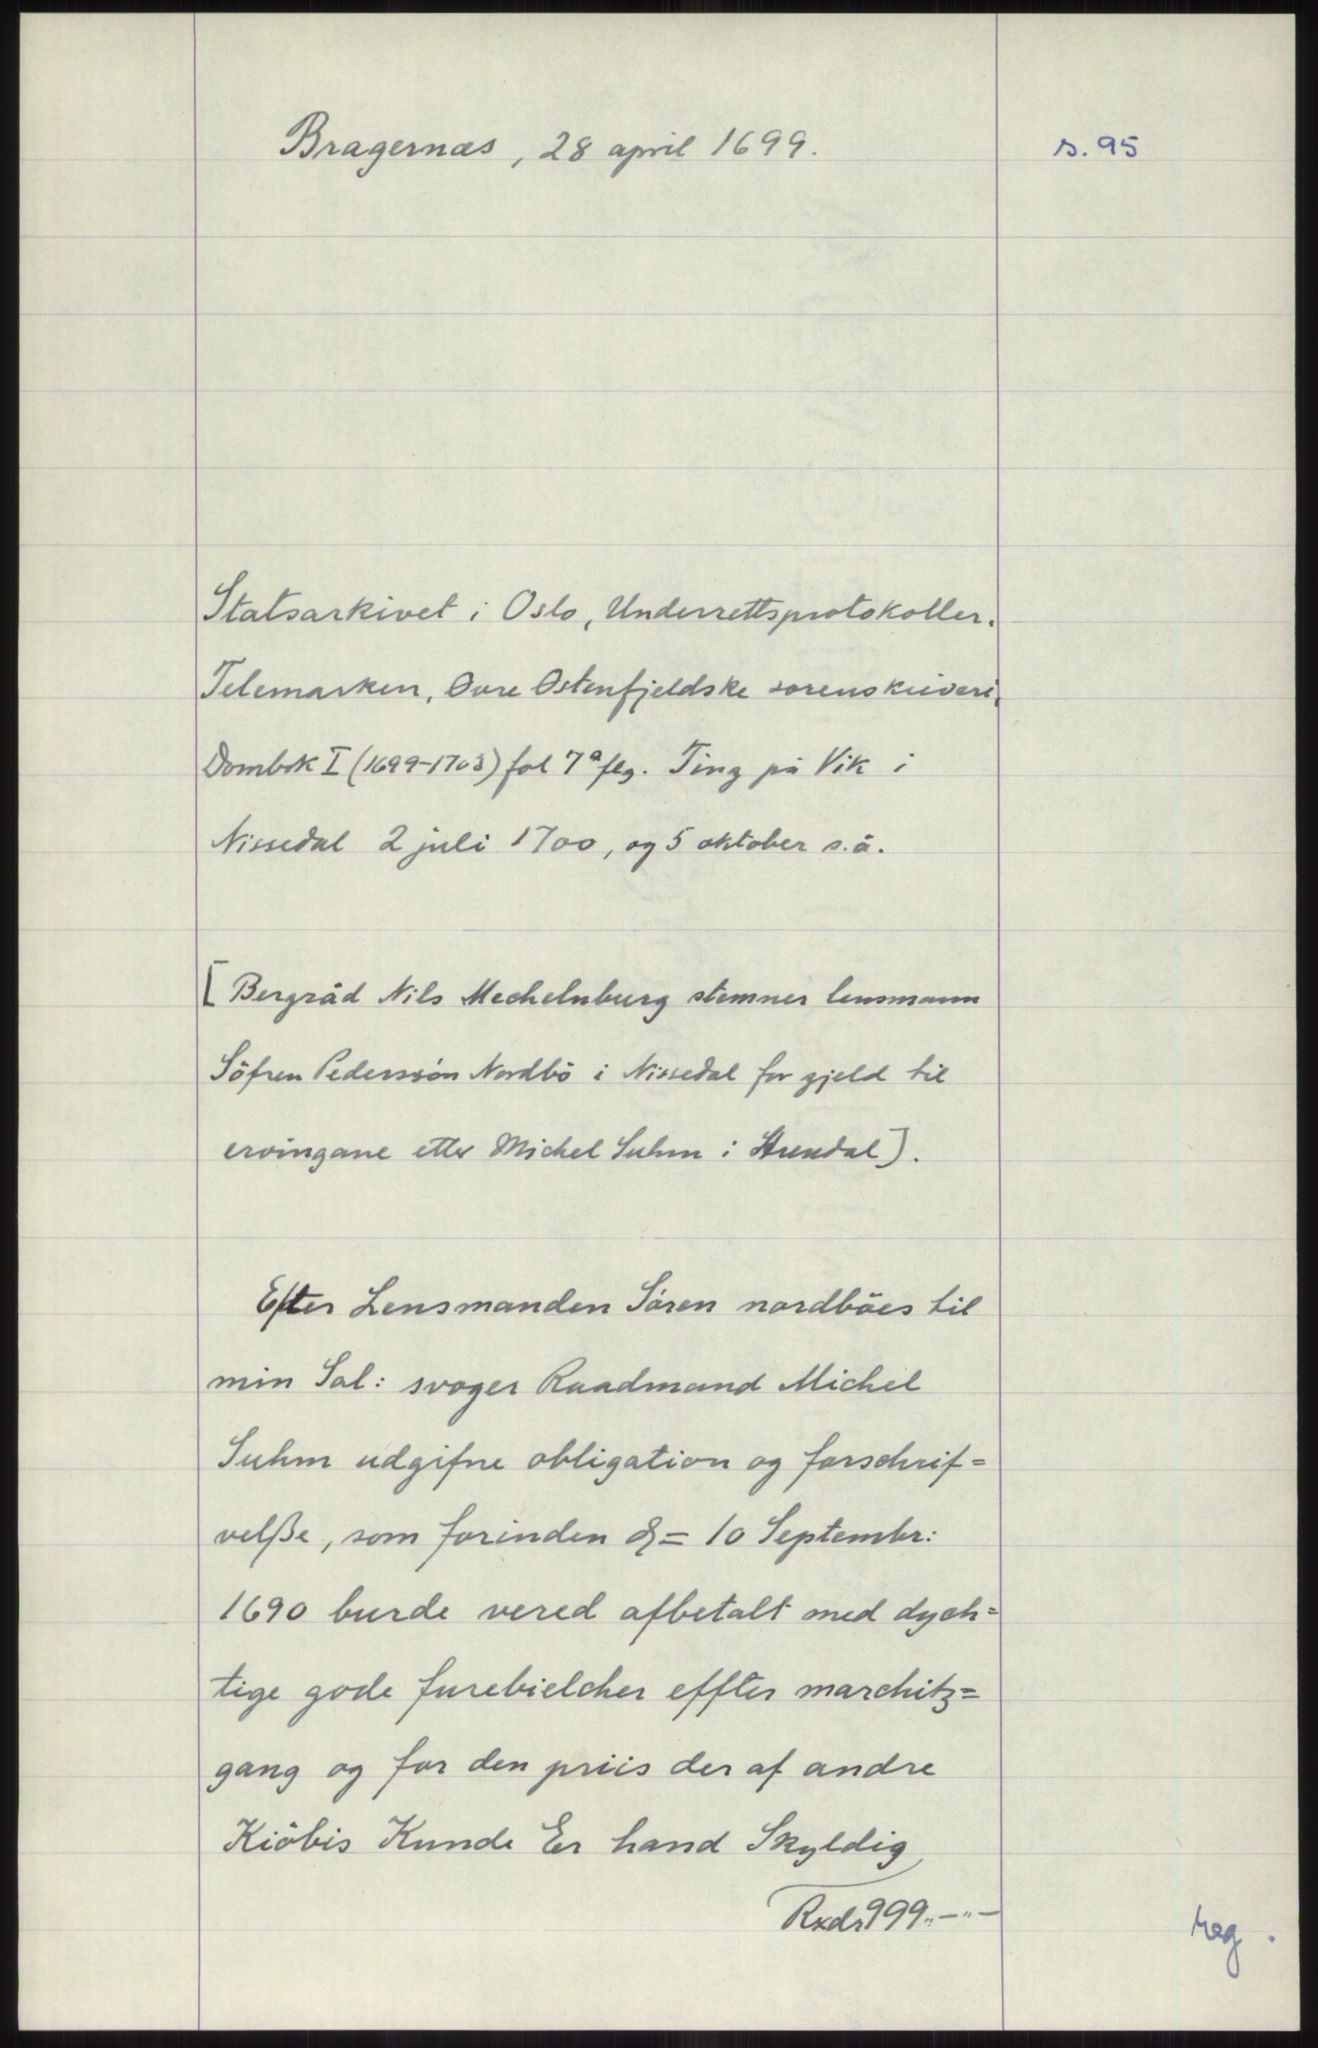 Bragernæs, 28 april 1699.
s. 95
Statsarkivet i Oslo, Underrettsprotokoller.
Telemarken, Øvre Østenfjeldske sorenskriveri,
Dombok I (1699-1703) fol 7a flg. Ting på Vik i
Nissedal 2 juli 1700, og 5 oktober s.å.
[Bergråd Nils Mechelnburg stemner lensmann
Söfren Pederssön Nordbö i Nissedal for gjeld til
ervingane etter Michel Suhm i Arendal].
Efter Lensmanden Sören nordböes til
min Sal: svoger Raadmand Michel
Suhm udgifne obligation og forschrif=
velße, som forinden d= 10 Septembr:
1690 burde vered afbetalt med dych=
tige gode furebielcher effter marchitz=
gang og for den priis der af andre
Kiöbis Kunde Er hand Skyldig
Rxdr 999..-"-
reg.